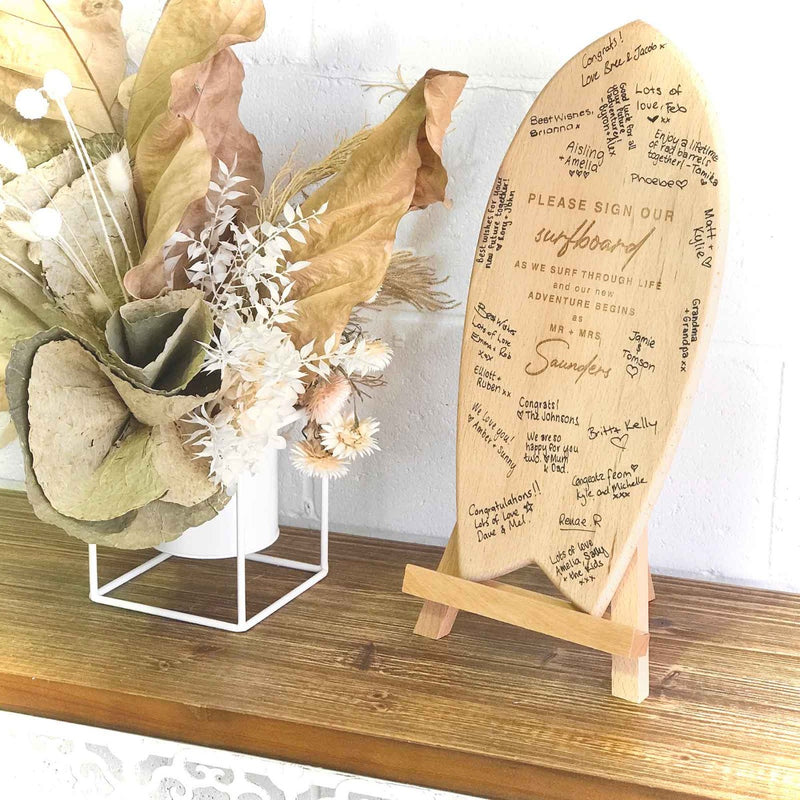 Congrats!
Love Bree & Jacob x
Good luck for all
your future
adventures!
- Byron + Amy
xx
Lots of
love, Feb
xx
Best Wishes,
Brianna x
Aisling
+
Amelia
Enjoy a lifetime
of rad barrels
together! - Tamika
Phoebe
Best wishes for your
new future together!
Rory + John
PLEASE SIGN OUR
surfboard
AS WE SURF THROUGH LIFE
and our new
ADVENTURE BEGINS
as
MR + MRS
Saunders
Matt +
Kylie
Grandma
+ Grandpa
xx
Best Wishes
Lots of Love
Emma + Rob
xxx
Jamie
&
Tomson
Elliott +
Ruben xx
Congrats!
The Johnsons.
We Love you!
Amber + Sunny
We are so
happy for you
two. Mum
& Dad.
Britt + Kelly
Congratz from
Kyle and Michelle
xxx
Congratulations!!
Lots of Love
Dave & Mel.
Renae. R
Lots of love
Amelia Sally
+ the Kids
xxx